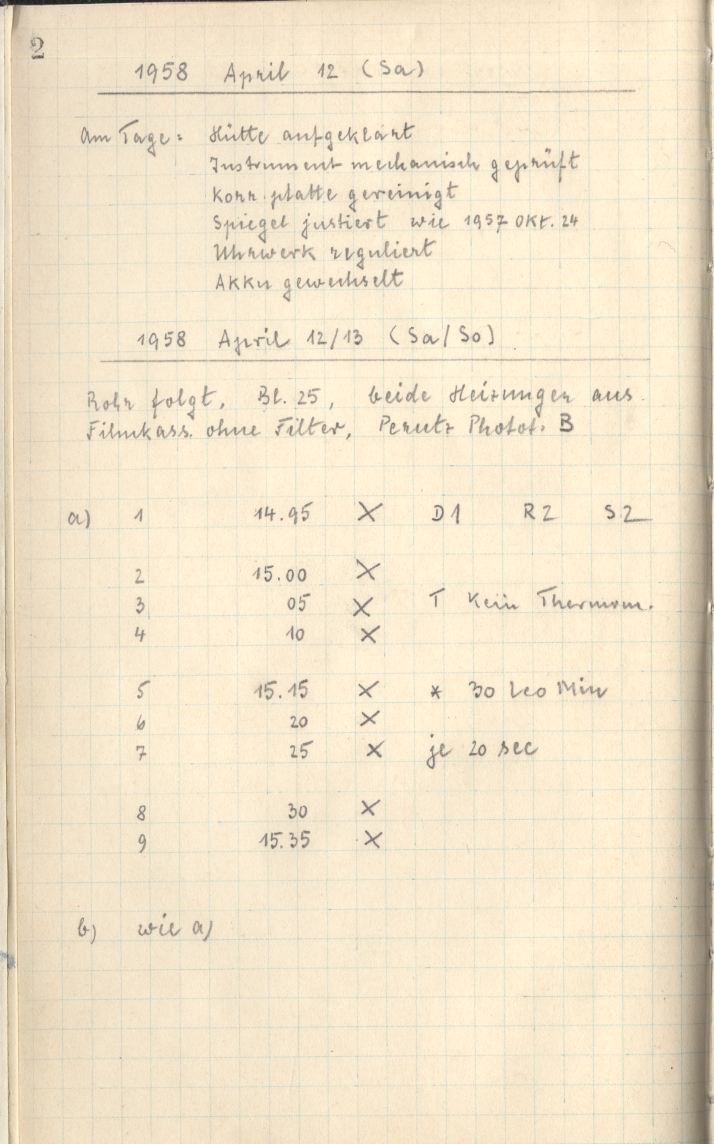 2
1958 April 12 (Sa)
Am Tage: Hütte aufgeklart
Instrument mechanisch geprüft
Korr.platte gereinigt
Spiegel justiert wie 1957 Okt. 24
Uhrwerk reguliert
Akku gewechselt
1958 April 12/13 (Sa/So)
Rohr folgt, Bl. 25, beide Heizungen aus
Filmkass. ohne Filter, Perutz Photot. B
a) 1 14.95 × D1 R2 S2
2 15.00 ×
3 05 × T Kein Thermom.
4 10 ×
5 15.15 × * 30 Leo Min
6 20 ×
7 25 × je 20 sec
8 30 ×
9 15.35 ×
b) wie a)